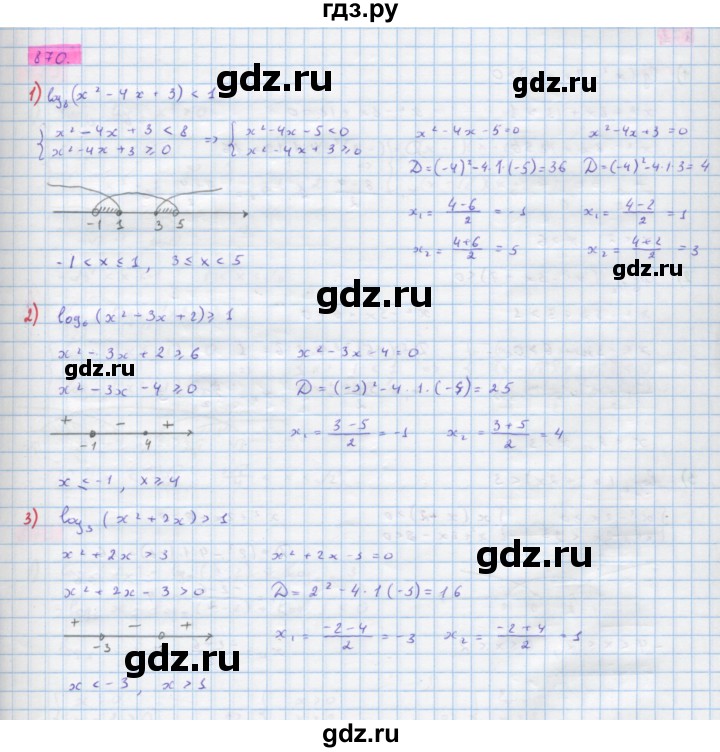 гдз.ру
870.
1) log₈(x² - 4x + 3) < 1
{ x² - 4x + 3 < 8 => { x² - 4x - 5 < 0 x² - 4x - 5 = 0 x² - 4x + 3 = 0
{ x² - 4x + 3 ≥ 0 { x² - 4x + 3 ≥ 0
D = (-4)² - 4·1·(-5) = 36 D = (-4)² - 4·1·3 = 4
-1 1 3 5
x₁ = (4-6)/2 = -1 x₁ = (4-2)/2 = 1
x₂ = (4+6)/2 = 5 x₂ = (4+2)/2 = 3
-1 < x ≤ 1, 3 ≤ x < 5
gdz.ru
gdz.ru
gdz.ru
2) log₆(x² - 3x + 2) ≥ 1
x² - 3x + 2 ≥ 6 x² - 3x - 4 = 0
gdz.ru
x² - 3x - 4 ≥ 0 D = (-3)² - 4·1·(-4) = 25
+ - +
-1 4
x₁ = (3-5)/2 = -1 x₂ = (3+5)/2 = 4
gdz.ru
x ≤ -1, x ≥ 4
3) log₃(x² + 2x) > 1
x² + 2x > 3 x² + 2x - 3 = 0
gdz.ru
x² + 2x - 3 > 0 D = 2² - 4·1(-3) = 16
+ - +
-3
x₁ = (-2-4)/2 = -3 x₂ = (-2+4)/2 = 1
gdz.ru
gdz.ru
x < -3, x > 1
gdz.ru